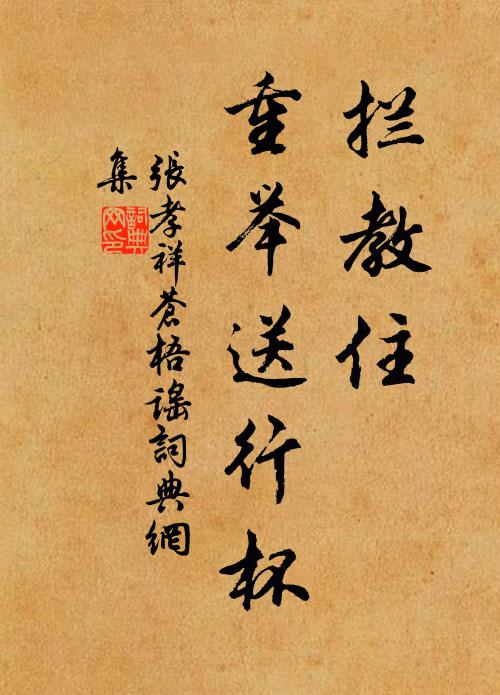 拦教住
重举送行杯
張孝祥蒼梧謡詞典網
集
詞典网印